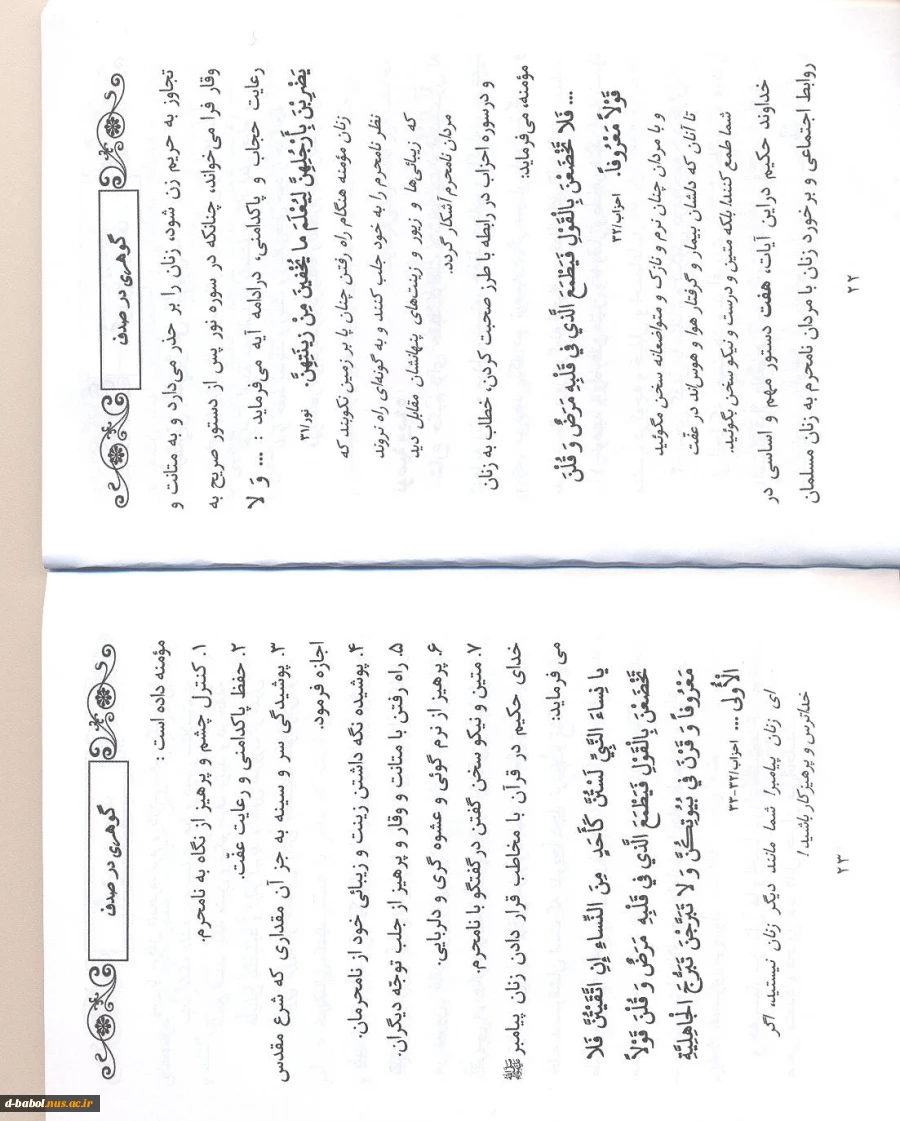 گوهری در صدف
تجاوز به حریم زن شود، زنان را بر حذر می‌دارد و به متانت و
وقار فرا می‌خواند، چنانکه در سوره نور پس از دستور صریح به
رعایت حجاب و پاکدامنی، در ادامه آیه می‌فرماید : ... وَ لا
یَضْرِبْنَ بِأَرْجُلِهِنَّ لِیُعْلَمَ ما یُخْفینَ مِنْ زینَتِهِنَّ. نور/۳۱
زنان مؤمنه هنگام راه رفتن چنان پا بر زمین نکوبند که
نظر نامحرم را به خود جلب کنند و به گونه‌ای راه نروند
که زیبائی‌ها و زیور و زینت‌های پنهانشان مقابل دید
مردان نامحرم آشکار گردد.
و در سوره احزاب در رابطه با طرز صحبت کردن، خطاب به زنان
مؤمنه، می‌فرماید:
... فَلا تَخْضَعْنَ بِالْقَوْلِ فَیَطْمَعَ الَّذي في قَلْبِهِ مَرَضٌ وَ قُلْنَ
قَوْلاً مَعْرُوفاً. احزاب/۳۲
و با مردان چنان نرم و نازک و متواضعانه سخن مگوئید
تا آنان که دلشان بیمار و گرفتار هوا و هوس‌اند در عفّت
شما طمع کنند! بلکه متین و درست و نیکو سخن بگوئید.
خداوند حکیم در این آیات، هفت دستور مهم و اساسی در
روابط اجتماعی و برخورد زنان با مردان نامحرم به زنان مسلمان
۲۲
گوهری در صدف
مؤمنه داده است :
۱. کنترل چشم و پرهیز از نگاه به نامحرم.
۲. حفظ پاکدامنی و رعایت عفّت.
۳. پوشیدگی سر و سینه به جز آن مقداری که شرع مقدس
اجازه فرمود.
۴. پوشیده نگه داشتن زینت و زیبائی خود از نامحرمان.
۵. راه رفتن با متانت و وقار و پرهیز از جلب توجّه دیگران.
۶. پرهیز از نرم گوئی و عشوه گری و دلربایی.
۷. متین و نیکو سخن گفتن در گفتگو با نامحرم.
خدای حکیم در قرآن با مخاطب قرار دادن زنان پیامبر ﷺ
می فرماید:
یا نِساءَ النَّبِيِّ لَسْتُنَّ کَأَحَدٍ مِنَ النِّساءِ إِنِ اتَّقَیْتُنَّ فَلا
تَخْضَعْنَ بِالْقَوْلِ فَیَطْمَعَ الَّذي في قَلْبِهِ مَرَضٌ وَ قُلْنَ قَوْلاً
مَعْرُوفاً وَ قَرْنَ في بُیُوتِکُنَّ وَ لا تَبَرَّجْنَ تَبَرُّجَ الْجاهِلِیَّةِ
الْأُولی ... احزاب/۳۲-۳۳
ای زنان پیامبر! شما مانند دیگر زنان نیستید، اگر
خداترس و پرهیزکار باشید!
۲۳
d-babol.nus.ac.ir